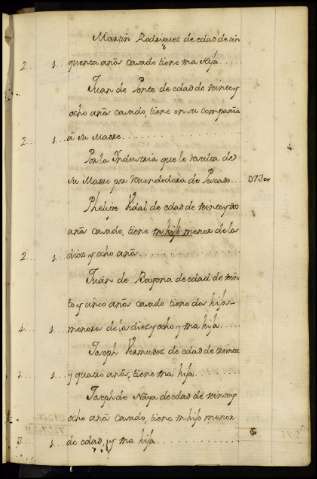 Martin Rodriguez de edad de cin
2 . . 1 . quenta años casado tiene una Hija
Juan de Ponte de edad de treinta y
ocho años casado, tiene en su compañia
2 . . 1 . a su Madre
Por la Industria que le resulta de
su Madre por
Phelipe Vidal de edad de treinta y
años casado, tiene un hijo menor de los
2 . . 1 . diez y ocho años
Juan de Rayona de edad de
ta y cinco años casado tiene dos hijos
4 . . 1 . menores de los diez y ocho y una hija
Joseph Bermudez de edad de treinta
1 . y quatro años, tiene una hija
Joseph de Naya de edad de treinta y
ocho años casado, tiene un hijo menor
3 . . 1 . de edad, y una hija